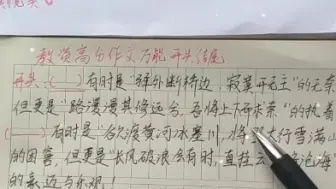 教资高分作文万能开头结尾
开头:(__)有时是"驿外断桥边,寂寞开无主"的无奈
但更是"路漫漫其修远兮,吾将上下而求索"的执着
(__)有时是"欲渡黄河冰塞川,将 太行雪满山
的困窘,但更是"长风破浪会有时,直挂云 沧海
的豪迈与乐观!